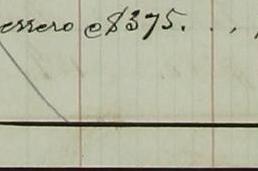 essero @ $375. . , ,